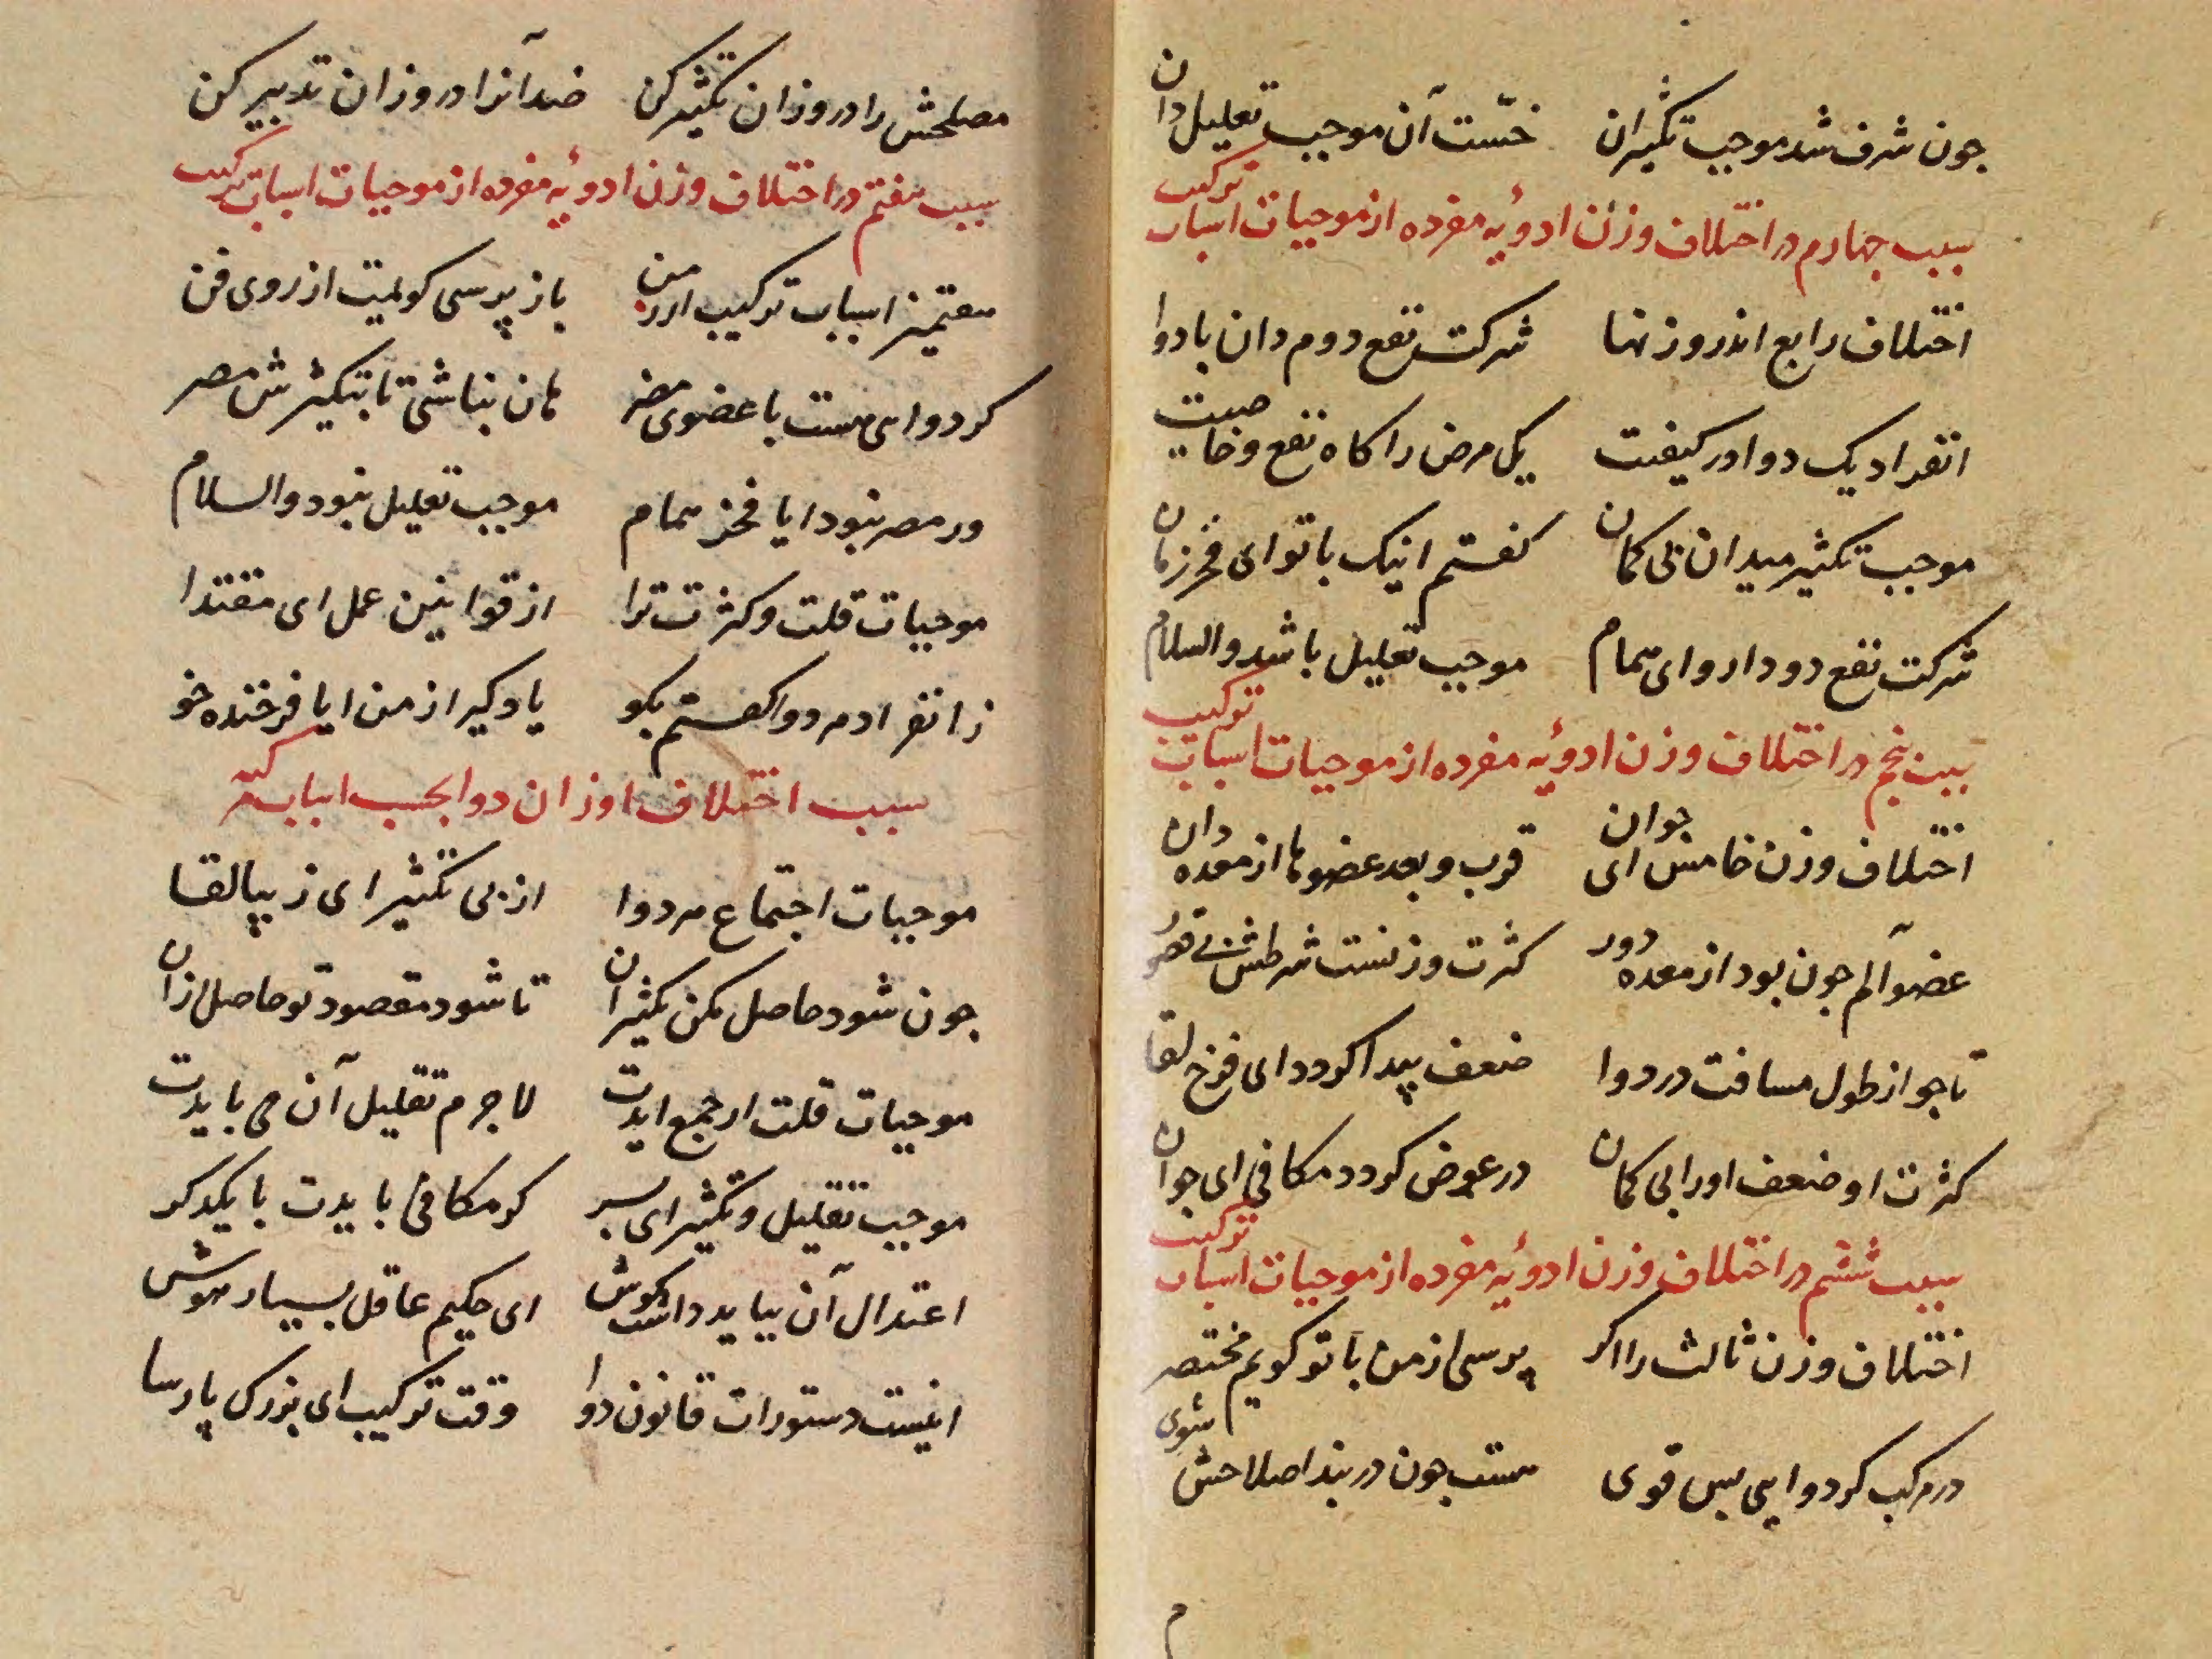 جون شرف شد موجب تکثیران خسّت آن موجب تقلیل دان
سبب جهارم در اختلاف وزن ادوئه مفرده از موجبات اسباب ترکیب
اختلاف رابع اندر وزنها شرکت نفع دوم دان با دوا
انفراد یک دوا در کیفیت یک مرض را کاه نفع و خاصیت
موجب تکثیر میدان بی کمان کفتم اینک با تو ای فخر زمان
شرکت نفع دو دارو ای همام موجب تقلیل باشد والسلام
سبب پنجم در اختلاف وزن ادوئه مفرده از موجبات اسباب ترکیب
اختلاف وزن خامس ای جوان قرب و بعد عضوها از معده دان
عضو آلم جون بود از معده دور کثرت وزنست شرطش بی قصور
تا جو از طول مسافت در دوا ضعف پیدا کردد ای فرخ لقا
کثرت او ضعف او را بی کمان در عوض کردد مکافی ای جوان
سبب ششم در اختلاف وزن ادوئه مفرده از موجبات اسباب ترکیب
اختلاف وزن ثالث را اکر پرسی از من با تو کویم مختصر
در مرکب کر دوایی بس قوی هست جون در بند اصلاحش شوی
م
مصلحش را در وزان تکثیر کن ضد آنرا در وزان تدبیر کن
سبب هفتم در اختلاف وزن ادوئه مفرده از موجبات اسباب ترکیب
هفتمین اسباب ترکیب ار ز من باز پرسی کویمت از روی فن
کر دوایی هست با عضوی مضر هان نباشی تا بتکثیرش مصر
ور مضر نبود ایا فخر همام موجب تقلیل نبود والسلام
موجبات قلت و کثرت ترا از قوانین عمل ای مقتدا
ز انفراد هر دوا کفتم نکو یاد کیر از من ایا فرخنده خو
سبب اختلاف اوزان دوا بحسب اسباب
موجبات اجتماع هر دوا از پی تکثیر ای زیبا لقا
جون شود حاصل مکن تکثیر ان تا شود مقصود تو حاصل ازان
موجبات قلت ار جمع ایدت لاجرم تقلیل آن می بایدت
موجب تقلیل و تکثیر ای پسر کر مکافی بایدت با یکدکر
اعتدال آن بباید داشت کوش ای حکیم عاقل بسیار هوش
اینست دستورات قانون دوا وقت ترکیب ای بزرک پارسا